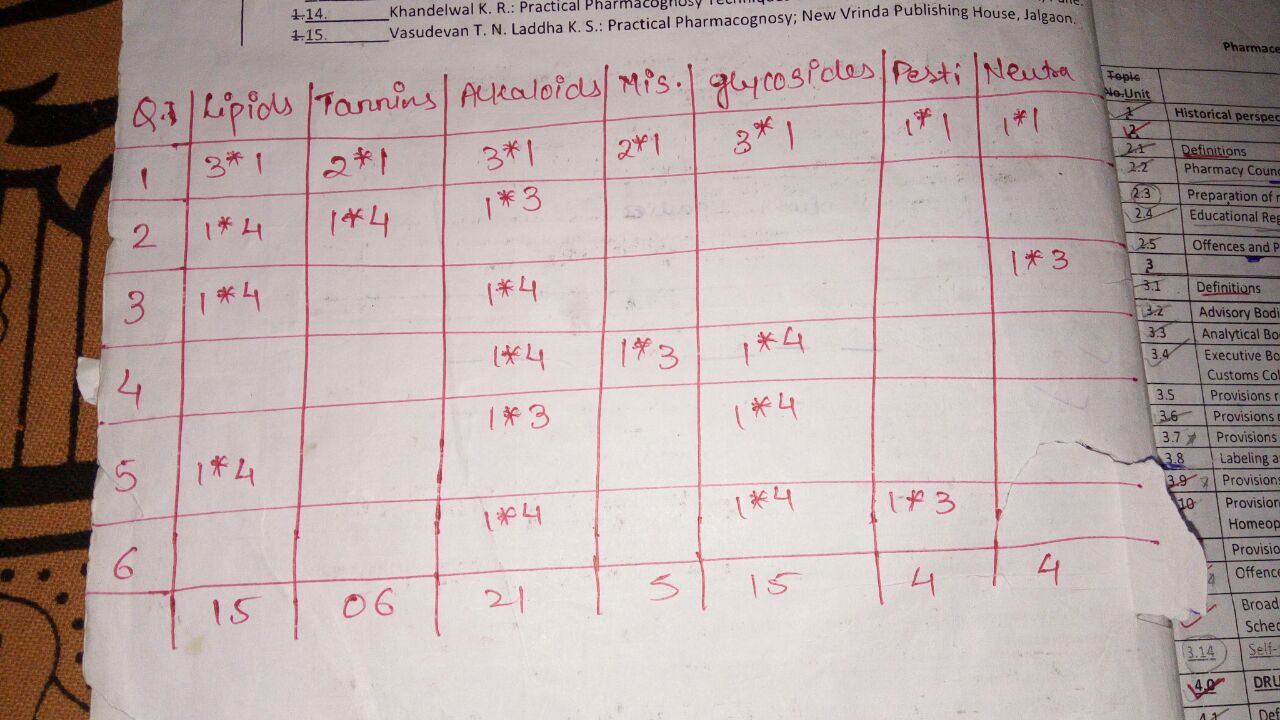 1.14. Khandelwal K. R.: Practical Pharmacognosy
1.15. Vasudevan T. N. Laddha K. S.: Practical Pharmacognosy; New Vrinda Publishing House, Jalgaon.
Q.I Lipids Tannins Alkaloids Mis. glycosides Pesti Neutra
1 3*1 2*1 3*1 2*1 3*1 1*1 1*1
2 1*4 1*4 1*3
3 1*4 1*4 1*3
4 1*4 1*3 1*4
5 1*4 1*3 1*4
6 1*4 1*4 1*3
15 06 21 5 15 4 4
Pharmace
Topic
No. Unit
1 Historical perspec
2
2.1 Definitions
2.2 Pharmacy Coun
2.3 Preparation of
2.4 Educational Re
2.5 Offences and P
3
3.1 Definitions
3.2 Advisory Bodi
3.3 Analytical Bo
3.4 Executive Bo
Customs Col
3.5 Provisions r
3.6 Provisions
3.7 Provisions
3.8 Labeling a
3.9 Provisions
10 Provision
Homeop
Provisio
Offence
Broad
Sched
3.14 Self-
4.0 DRU
4.1 Def